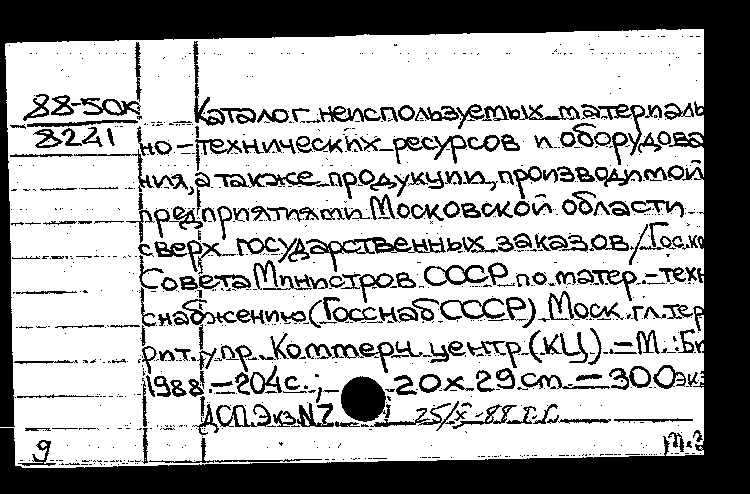 88-50к
8241
Каталог неиспользуемых материаль
но-технических ресурсов и оборудова
ния, а также продукции, производимой
предприятиями Московской области
сверх государственных заказов /Гос.ко
Совета Министров СССР по матер.-техн
снабжению (Госснаб СССР) Моск. гл. тер
рит. упр. Коммерч. центр (КЦ). – М.: Бп
1988. – 204 с.; 20 x 29 cm. – 300 экз
ДСП. Экз. N 7. 25/X-88 г.
9